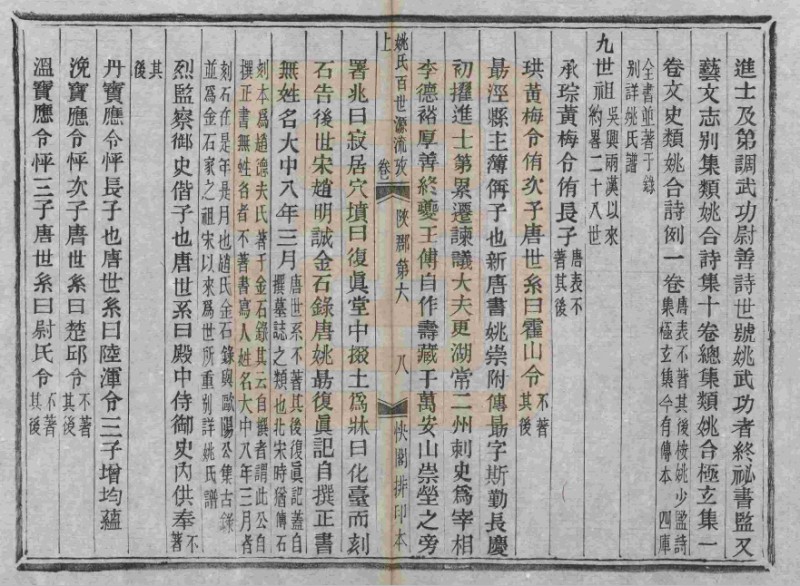 進士及第調武功尉善詩世號姚武功者終祕書監又
藝文志別集類姚合詩集十卷總集類姚合極玄集一
卷文史類姚合詩例一卷唐表不著其後桉姚少監詩集極玄集今有傳本四庫
全書並著于錄別詳姚氏譜
九世祖吳興兩漢以來約畧二十八世
承琮黃梅令侑長子唐表不著其後
珙黃梅令侑次子唐世系曰霍山令不著其後
勗涇縣主薄偁子也新唐書姚崇附傳勗字斯勤長慶
初擢進士第累遷諫議大夫更湖常二州刺史爲宰相
李德裕厚善終夔王傅自作壽藏于萬安山崇塋之旁
署兆曰寂居穴墳曰復眞堂中掇土爲牀曰化臺而刻
石告後世宋趙明誠金石錄唐姚勗復眞記自撰正書
無姓名大中八年三月唐世系不著其後復眞記蓋自撰墓誌之類也北宋時猶傳石
刻本爲趙德夫氏著于金石錄其云自撰者謂此公自撰正書無姓名者不著書寫人姓名大中八年三月者
刻石在是年是月也趙氏金石錄與歐陽公集古錄並爲金石家之祖宋以來爲世所重別詳姚氏譜
烈監察御史偕子也唐世系曰殿中侍御史內供奉不著
其後
丹寶應令怦長子也唐世系曰陸渾令三子增均蘊
浼寶應令怦次子唐世系曰楚邱令不著其後
溫寶應令怦三子唐世系曰尉氏令不著其後
姚氏百世源流攷 卷上 陝郡第六 八 快閣排印本